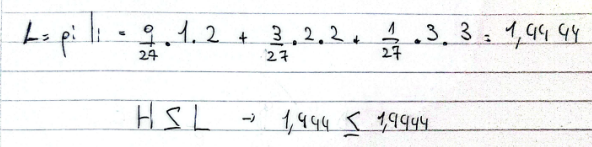 L = pi li = 9/27 . 1 . 2 + 3/27 . 2 . 2 + 1/27 . 3 . 3 = 1,4444
H ≤ L → 1,444 ≤ 1,4444